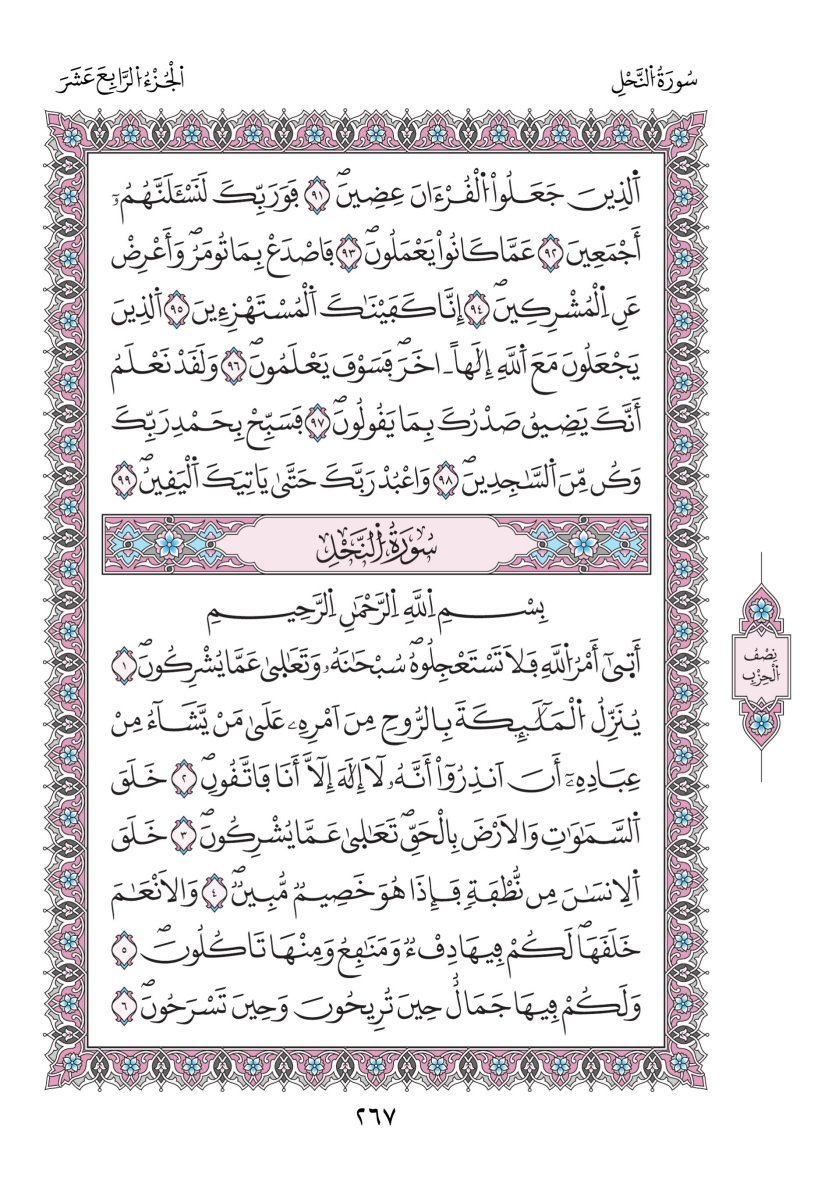 سُورَةُ النَّحْلِ
اَلْجُزْءُ الرَّابِعَ عَشَرَ
اَلذِينَ جَعَلُواْ الْقُرْءَانَ عِضِينَۖ ٩١ فَوَرَبِّكَ لَنَسْـَٔلَنَّهُمُۥٓ
أَجْمَعِينَ ٩٢ عَمَّا كَانُواْ يَعْمَلُونَۖ ٩٣ فَاصْدَعْ بِمَا تُومَرُۖ وَأَعْرِضْ
عَنِ اِلْمُشْرِكِينَۖ ٩٤ إِنَّا كَفَيْنَٰكَ اَلْمُسْتَهْزِءِينَ ٩٥ اَلذِينَ
يَجْعَلُونَ مَعَ اَللَّهِ إِلَٰهاً ـ اخَرَۖ فَسَوْفَ يَعْلَمُونَۖ ٩٦ وَلَقَدْ نَعْلَمُ
أَنَّكَ يَضِيقُ صَدْرُكَ بِمَا يَقُولُونَۖ ٩٧ فَسَبِّحْ بِحَمْدِ رَبِّكَ
وَكُن مِّنَ اَلسَّٰجِدِينَۖ ٩٨ وَاعْبُدْ رَبَّكَ حَتَّىٰ يَاتِيَكَ اَلْيَقِينُۖ ٩٩
سُورَةُ النَّحْلِ
بِسْمِ اِللَّهِ اِلرَّحْمَٰنِ اِلرَّحِيمِ
أَتٜىٰٓ أَمْرُ اُللَّهِ فَلَا تَسْتَعْجِلُوهُۖ سُبْحَٰنَهُۥ وَتَعَٰلٜىٰ عَمَّا يُشْرِكُونَۖ ١
يُنَزِّلُ اُلْمَلَٰٓئِكَةَ بِالرُّوحِ مِنَ اَمْرِهِۦ عَلَىٰ مَنْ يَّشَآءُ مِنْ
عِبَادِهِۦٓ أَنَ اَنذِرُوٓاْ أَنَّهُۥ لَآ إِلَٰهَ إِلَّآ أَنَا فَاتَّقُونِۖ ٢ خَلَقَ
اَلسَّمَٰوَٰتِ وَالَارْضَ بِالْحَقِّۖ تَعَٰلٜىٰ عَمَّا يُشْرِكُونَۖ ٣ خَلَقَ
اَلِانسَٰنَ مِن نُّطْفَةٖ فَإِذَا هُوَ خَصِيمٞ مُّبِينٞۖ ٤ وَالَانْعَٰمَ
خَلَقَهَاۖ لَكُمْ فِيهَا دِفْءٞ وَمَنَٰفِعُ وَمِنْهَا تَاكُلُونَۖ ٥
وَلَكُمْ فِيهَا جَمَالٌ حِينَ تُرِيحُونَ وَحِينَ تَسْرَحُونَۖ ٦
نِصْفُ
اَلْحِزْبِ
٢٦٧